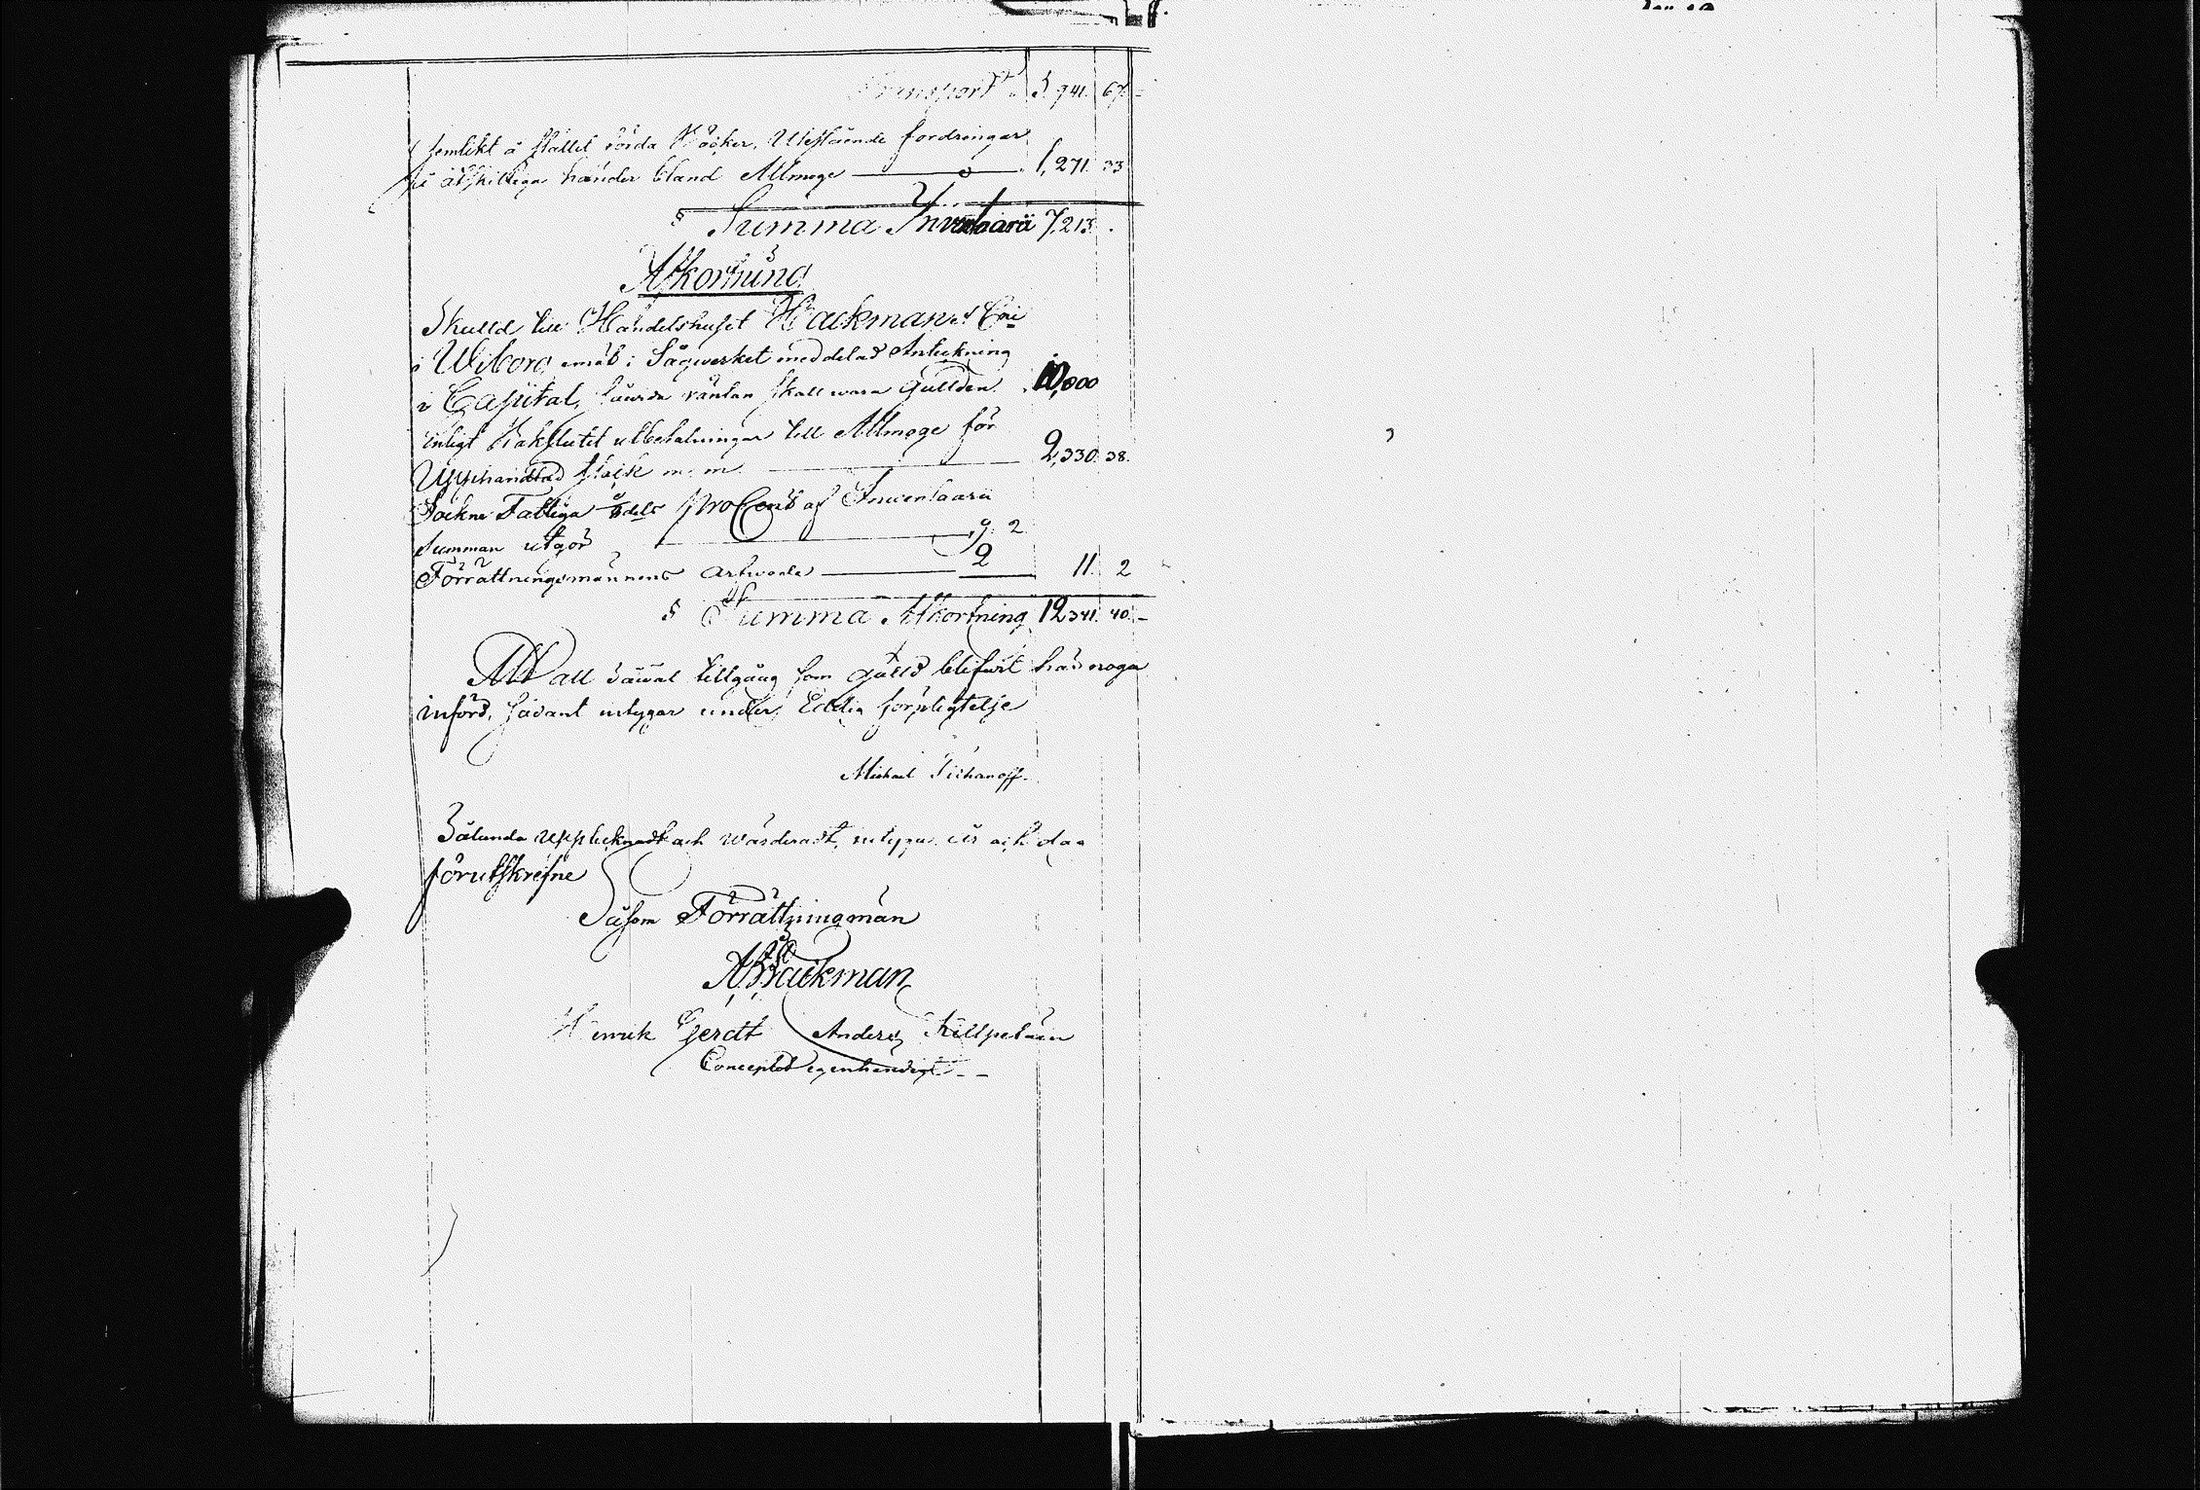 Transport 5,941. 67.
Jemlikt å stället förda Böcker, Utestående fordringar
på åtskillige händer bland Allmoge 1,271. 33
S Summa Inventarii 7,213.
Afkortning
Skuld till Handelshuset Hackman et Co
i Wiborg enligt i Sågwerket meddelad Anteckning
i Capital, hwarå räntan skall wara gulden 10,000
enligt Bokslutet utbetalningar till Allmoge för
Upphandlad stock m. m. 2,330. 38.
Sockne Fattiga 1/8 dels ProCent af Inventarii
Summan utgör 9. 2
Förrättningsmännens Arfwode 2 11. 2
S Summa Afkortning 12,341. 40.
Att all såwäl tillgång som gäld blifwit här noga
införd, sådant intygar under Edelig förpligtelse
Michael Tichanoff.
Sålunda upptecknadt och wärderadt, intygar, år och dag
förutskrefne
Såsom Förrättningsmän
Hackman
Henrik Gerdt Anders Killpeläin
Conceptet egenhändigt